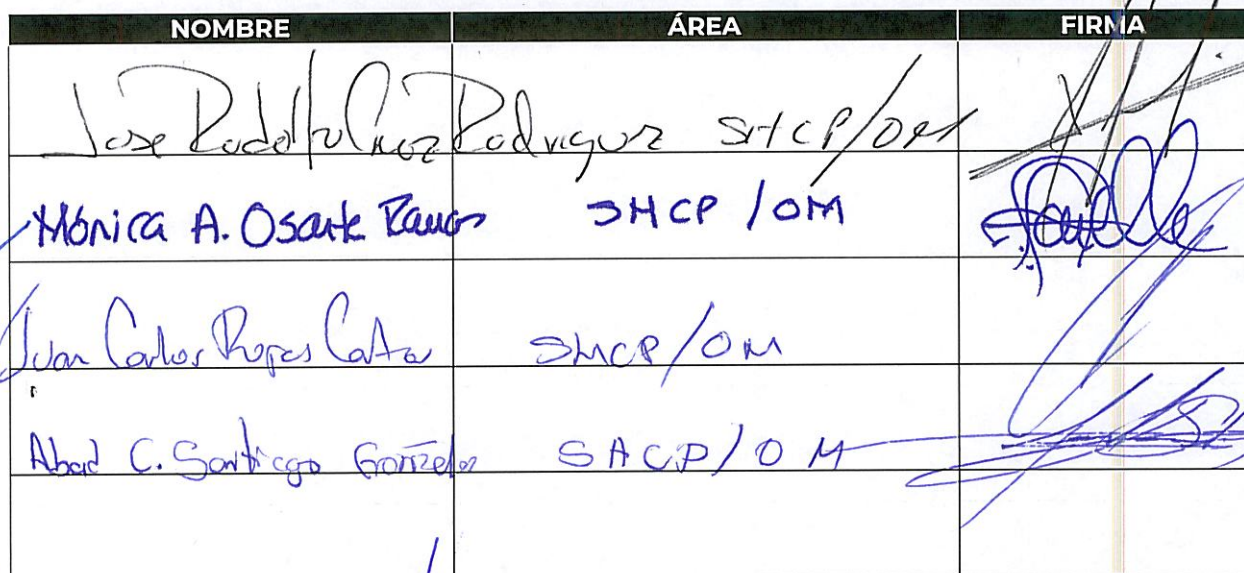 NOMBRE ÁREA FIRMA
Jose Rodolfo Cruz Rodriguez SHCP/OM
Mónica A. Osante Ramos SHCP/OM
Juan Carlos Rojas SHCP/OM
Abad C. Santiago González SACP/OM